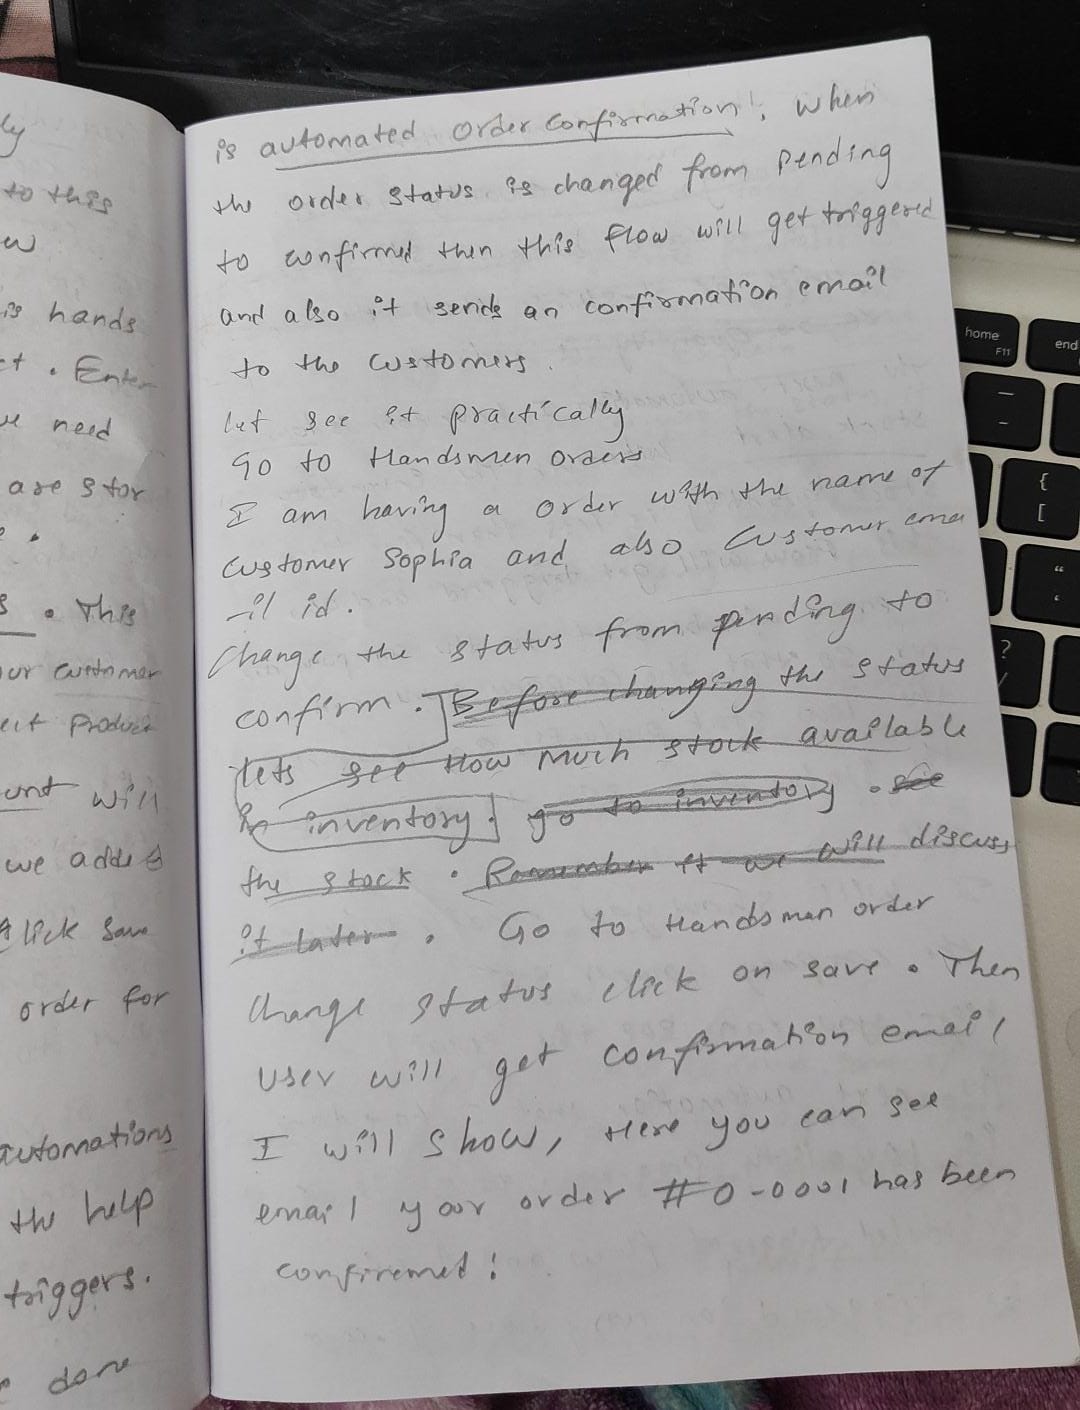 ly
to this
ew
is hands
ct . Enter
we need
are stor
e .
s . This
our customer
ect Product
unt will
we added
Click Save
order for
automations
the help
triggers.
done
is automated order confirmation!, when
the order status is changed from pending
to confirmed then this flow will get triggered
and also it sends an confirmation email
to the customers.
let see it practically
Go to Handsmen orders
I am having a order with the name of
customer Sophia and also customer ema
-il id.
Change the status from pending to
confirm. Before changing the status
lets see How much stock available
in inventory. go to inventory . see
the stock . Remember it we will discuss
it later . Go to Handsman order
Change status click on save . Then
User will get confirmation email
I will show, Here you can see
email your order #0-0001 has been
confiremed!
home
F11
end
{
[
"
?
/